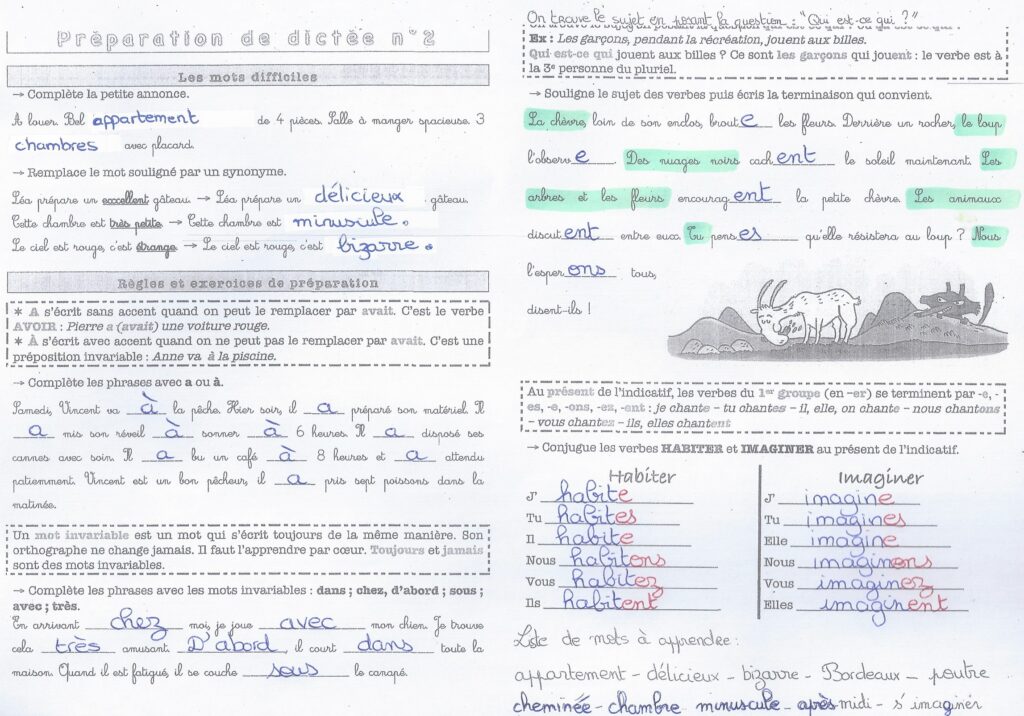 Préparation de dictée n°2
Les mots difficiles
→ Complète la petite annonce.
A louer. Bel appartement de 4 pièces. Salle à manger spacieuse. 3
chambres avec placard.
→ Remplace le mot souligné par un synonyme.
Léa prépare un excellent gâteau. → Léa prépare un délicieux gâteau.
Cette chambre est très petite. → Cette chambre est minuscule.
Le ciel est rouge, c'est étrange. → Le ciel est rouge, c'est bizarre.
Règles et exercices de préparation
* A s'écrit sans accent quand on peut le remplacer par avait. C'est le verbe
AVOIR : Pierre a (avait) une voiture rouge.
* À s'écrit avec accent quand on ne peut pas le remplacer par avait. C'est une
préposition invariable : Anne va à la piscine.
→ Complète les phrases avec a ou à.
Samedi, Vincent va à la pêche. Hier soir, il a préparé son matériel. Il
a mis son réveil à sonner à 6 heures. Il a disposé ses
cannes avec soin. Il a bu un café à 8 heures et a attendu
patiemment. Vincent est un bon pêcheur, il a pris sept poissons dans la
matinée.
Un mot invariable est un mot qui s'écrit toujours de la même manière. Son
orthographe ne change jamais. Il faut l'apprendre par cœur. Toujours et jamais
sont des mots invariables.
→ Complète les phrases avec les mots invariables : dans ; chez, d'abord ; sous ;
avec ; très.
En arrivant chez moi, je joue avec mon chien. Je trouve
cela très amusant. D'abord, il court dans toute la
maison. Quand il est fatigué, il se couche sous le canapé.
On trouve le sujet en posant la question : "Qui est-ce qui ?"
Ex : Les garçons, pendant la récréation, jouent aux billes.
Qui est-ce qui jouent aux billes ? Ce sont les garçons qui jouent : le verbe est à
la 3e personne du pluriel.
→ Souligne le sujet des verbes puis écris la terminaison qui convient.
La chèvre, loin de son enclos, broute les fleurs. Derrière un rocher, le loup
l'observe. Des nuages noirs cachent le soleil maintenant. Les
arbres et les fleurs encouragent la petite chèvre. Les animaux
discutent entre eux. Tu penses qu'elle résistera au loup ? Nous
l'esperons tous,
disent-ils !
Au présent de l'indicatif, les verbes du 1er groupe (en -er) se terminent par -e, -
es, -e, -ons, -ez, -ent : je chante - tu chantes - il, elle, on chante - nous chantons
- vous chantez - ils, elles chantent
→ Conjugue les verbes HABITER et IMAGINER au présent de l'indicatif.
Habiter
J' habite
Tu habites
Il habite
Nous habitons
Vous habitez
Ils habitent
Imaginer
J' imagine
Tu imagines
Elle imagine
Nous imaginons
Vous imaginez
Elles imaginent
Liste de mots à apprendre :
appartement - délicieux - bizarre - Bordeaux - poutre
cheminée - chambre minuscule - après midi - s'imaginer